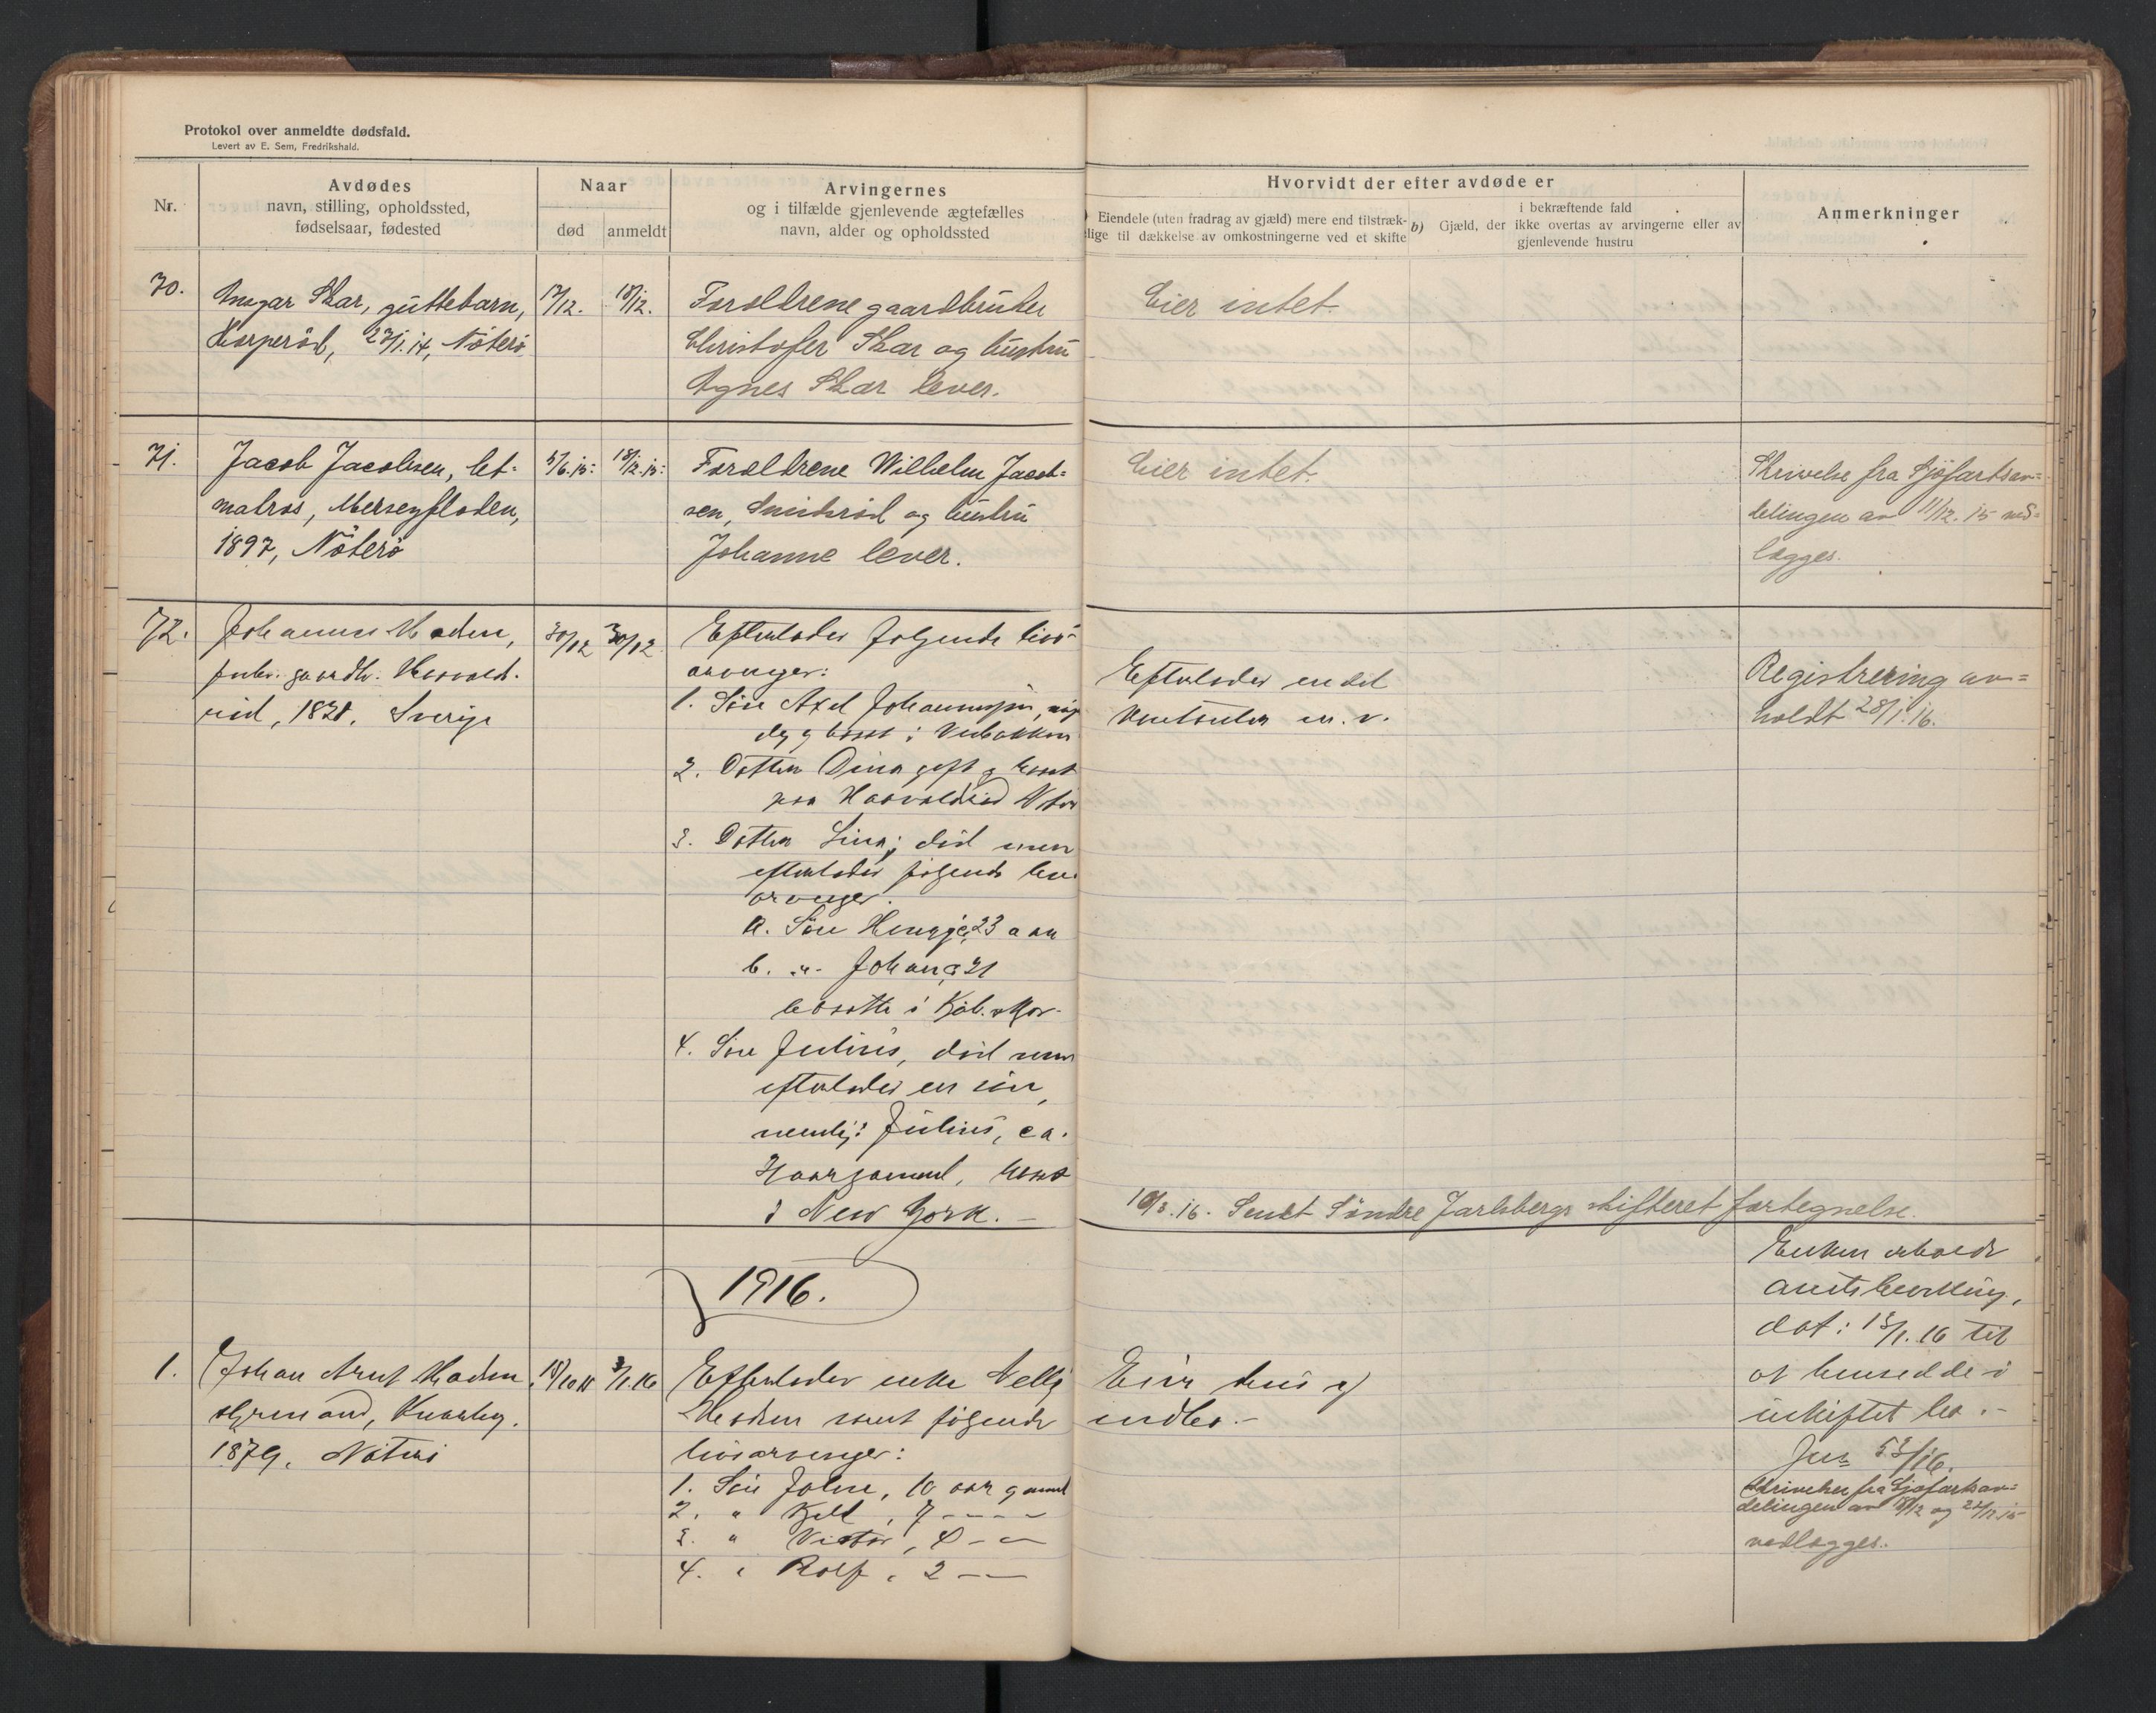 Protokol over anmeldte dødsfald.
Levert av E. Sem, Fredrikshald.
Nr.
Avdødes
navn, stilling, opholdssted,
fødselsaar, fødested
Naar
død
anmeldt
Arvingernes
og i tilfælde gjenlevende ægtefælles
navn, alder og opholdssted
Hvorvidt der efter avdøde er
Eiendele (uten fradrag av gjæld) mere end tilstræk-
lige til dækkelse av omkostningerne ved et skifte
b) Gjæld, der
i bekræftende fald
ikke overtas av arvingerne eller av
gjenlevende hustru
Anmerkninger
70.
Ansgar Skar, guttebarn,
Korperød, 27/1.14, Nøterø
17/12.
18/12.
Forældrene gaardbruker
Christofer Skar og hustru
Agnes Skar lever.
Eier intet.
71.
Jacob Jacobsen, let-
matros, Merseyfloden,
1897, Nøterø
18/12.15.
Forældrene Wilhelm Jacob-
sen, Smidsrød og hustru
Johanne lever.
Eier intet.
Skrivelse fra Sjøfartsav-
delingen av 11/12.15 ved-
lægges.
72.
Johannes
forhv. gaardbr.
1828, Sverige
30/12
30/12
Efterlader følgende livs-
arvinger:
1. Søn Axel Johannessen, myn-
dig og bosat i Vebakken
2. Datter Dina gift og bosat
paa Nøterø
3. Datter Lina; død men
efterlader følgende livs
arvinger.
a. Søn 23 aar
b. -"- Johan, 21
bosatte i
4. Søn Julius, død men
efterlader en søn,
nemlig: Julius, ca.
aar gammel, bosat
i New York. –
Efterlader endel
værktøi m. v.
Registrering av-
holdt 28/1.16.
10/3.16. Sendt Søndre Jarlsbergs skifteret fortegnelse.
1916.
1.
Johan Arnt
styrmand, Knarberg.
1879, Nøterø
3/1.16
Efterlader enke Nelly
samt følgende
livsarvinger:
1. Søn John, 10 aar gammel
2. " Kjell, 7 - - - -
3. " Victor, 4 - - -
4. " Rolf, 2 - -
Eier hus og
indbo. –
Enken erholdt
amtsbevilling,
dat: 13/1.16 til
at hensidde i
uskiftet bo. –
Jur. 53/16.
Skrivelser fra Sjøfartsav-
delingen av 8/12 og 22/12.15
vedlægges.